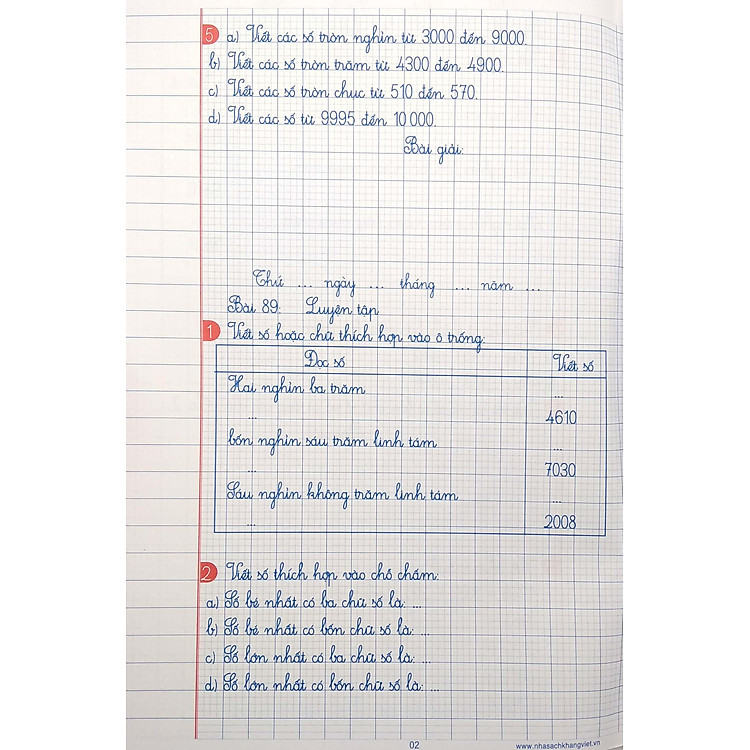 5 a) Viết các số tròn nghìn từ 3000 đến 9000.
b) Viết các số tròn trăm từ 4300 đến 4900.
c) Viết các số tròn chục từ 510 đến 570.
d) Viết các số từ 9995 đến 10 000.
Bài giải:
Thứ ... ngày ... tháng ... năm ...
Bài 89: Luyện tập
1 Viết số hoặc chữ thích hợp vào ô trống:
Đọc số Viết số
Hai nghìn ba trăm ...
... 4610
bốn nghìn sáu trăm linh tám ...
... 7030
Sáu nghìn không trăm linh tám ...
... 2008
2 Viết số thích hợp vào chỗ chấm:
a) Số bé nhất có ba chữ số là: ...
b) Số bé nhất có bốn chữ số là: ...
c) Số lớn nhất có ba chữ số là: ...
d) Số lớn nhất có bốn chữ số là: ...
02 www.nhasachkhangviet.vn